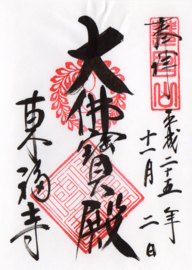 奉拝
平成二十五年
十一月二日
大佛寳殿
東福寺